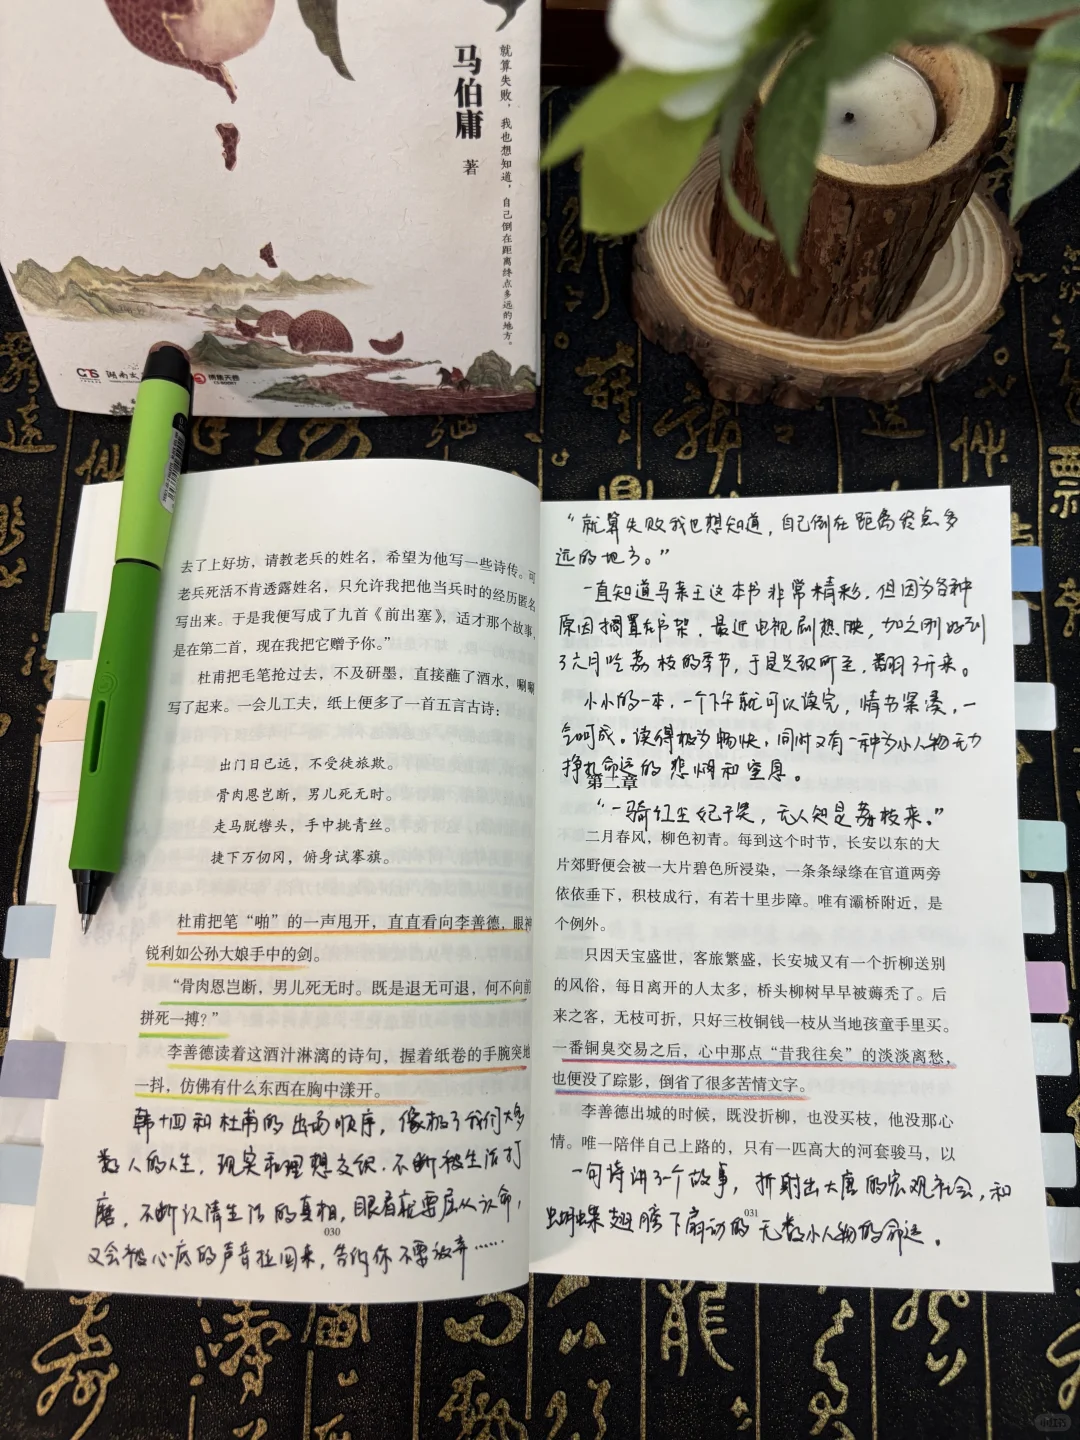 马伯庸 著
就算失败，我也想知道，自己倒在距离终点多远的地方。
CS
博集天卷
去了上好坊，请教老兵的姓名，希望为他写一些诗传。可
老兵死活不肯透露姓名，只允许我把他当兵时的经历匿名
写出来。于是我便写成了九首《前出塞》，适才那个故事，
是在第二首，现在我把它赠予你。”
杜甫把毛笔抢过去，不及研墨，直接蘸了酒水，唰唰
写了起来。一会儿工夫，纸上便多了一首五言古诗：
出门日已远，不受徒旅欺。
骨肉恩岂断，男儿死无时。
走马脱辔头，手中挑青丝。
捷下万仞冈，俯身试搴旗。
杜甫把笔“啪”的一声甩开，直直看向李善德，眼神
锐利如公孙大娘手中的剑。
“骨肉恩岂断，男儿死无时。既是退无可退，何不向前
拼死一搏？”
李善德读着这酒汁淋漓的诗句，握着纸卷的手腕突地
一抖，仿佛有什么东西在胸中漾开。
韩十四和杜甫的出场顺序，像极了我们大多
数人的人生，现实和理想交织，不断被生活打
磨，不断认清生活的真相，眼看就要屈从认命，
又会被心底的声音拉回来，告诉你不要放弃……
030
“就算失败我也想知道，自己倒在距离终点多
远的地方。”
一直知道马亲王这本书非常精彩，但因为各种
原因搁置书架，最近电视剧热映，加之刚好到
了六月吃荔枝的季节，于是兴致所至，翻了开来。
小小的一本，一个下午就可以读完，情节紧凑，一
气呵成。读得极为畅快，同时又有一种为小人物无力
挣扎命运的悲悯和窒息。
第二章
“一骑红尘妃子笑，无人知是荔枝来。”
二月春风，柳色初青。每到这个时节，长安以东的大
片郊野便会被一大片碧色所浸染，一条条绿绦在官道两旁
依依垂下，积枝成行，有若十里步障。唯有灞桥附近，是
个例外。
只因天宝盛世，客旅繁盛，长安城又有一个折柳送别
的风俗，每日离开的人太多，桥头柳树早早被薅秃了。后
来之客，无枝可折，只好三枚铜钱一枝从当地孩童手里买。
一番铜臭交易之后，心中那点“昔我往矣”的淡淡离愁，
也便没了踪影，倒省了很多苦情文字。
李善德出城的时候，既没折柳，也没买枝，他没那心
情。唯一陪伴自己上路的，只有一匹高大的河套骏马，以
一句诗讲了一个故事，折射出大唐的宏观社会，和
蝴蝶翅膀下扇动的无数小人物的命运。
031